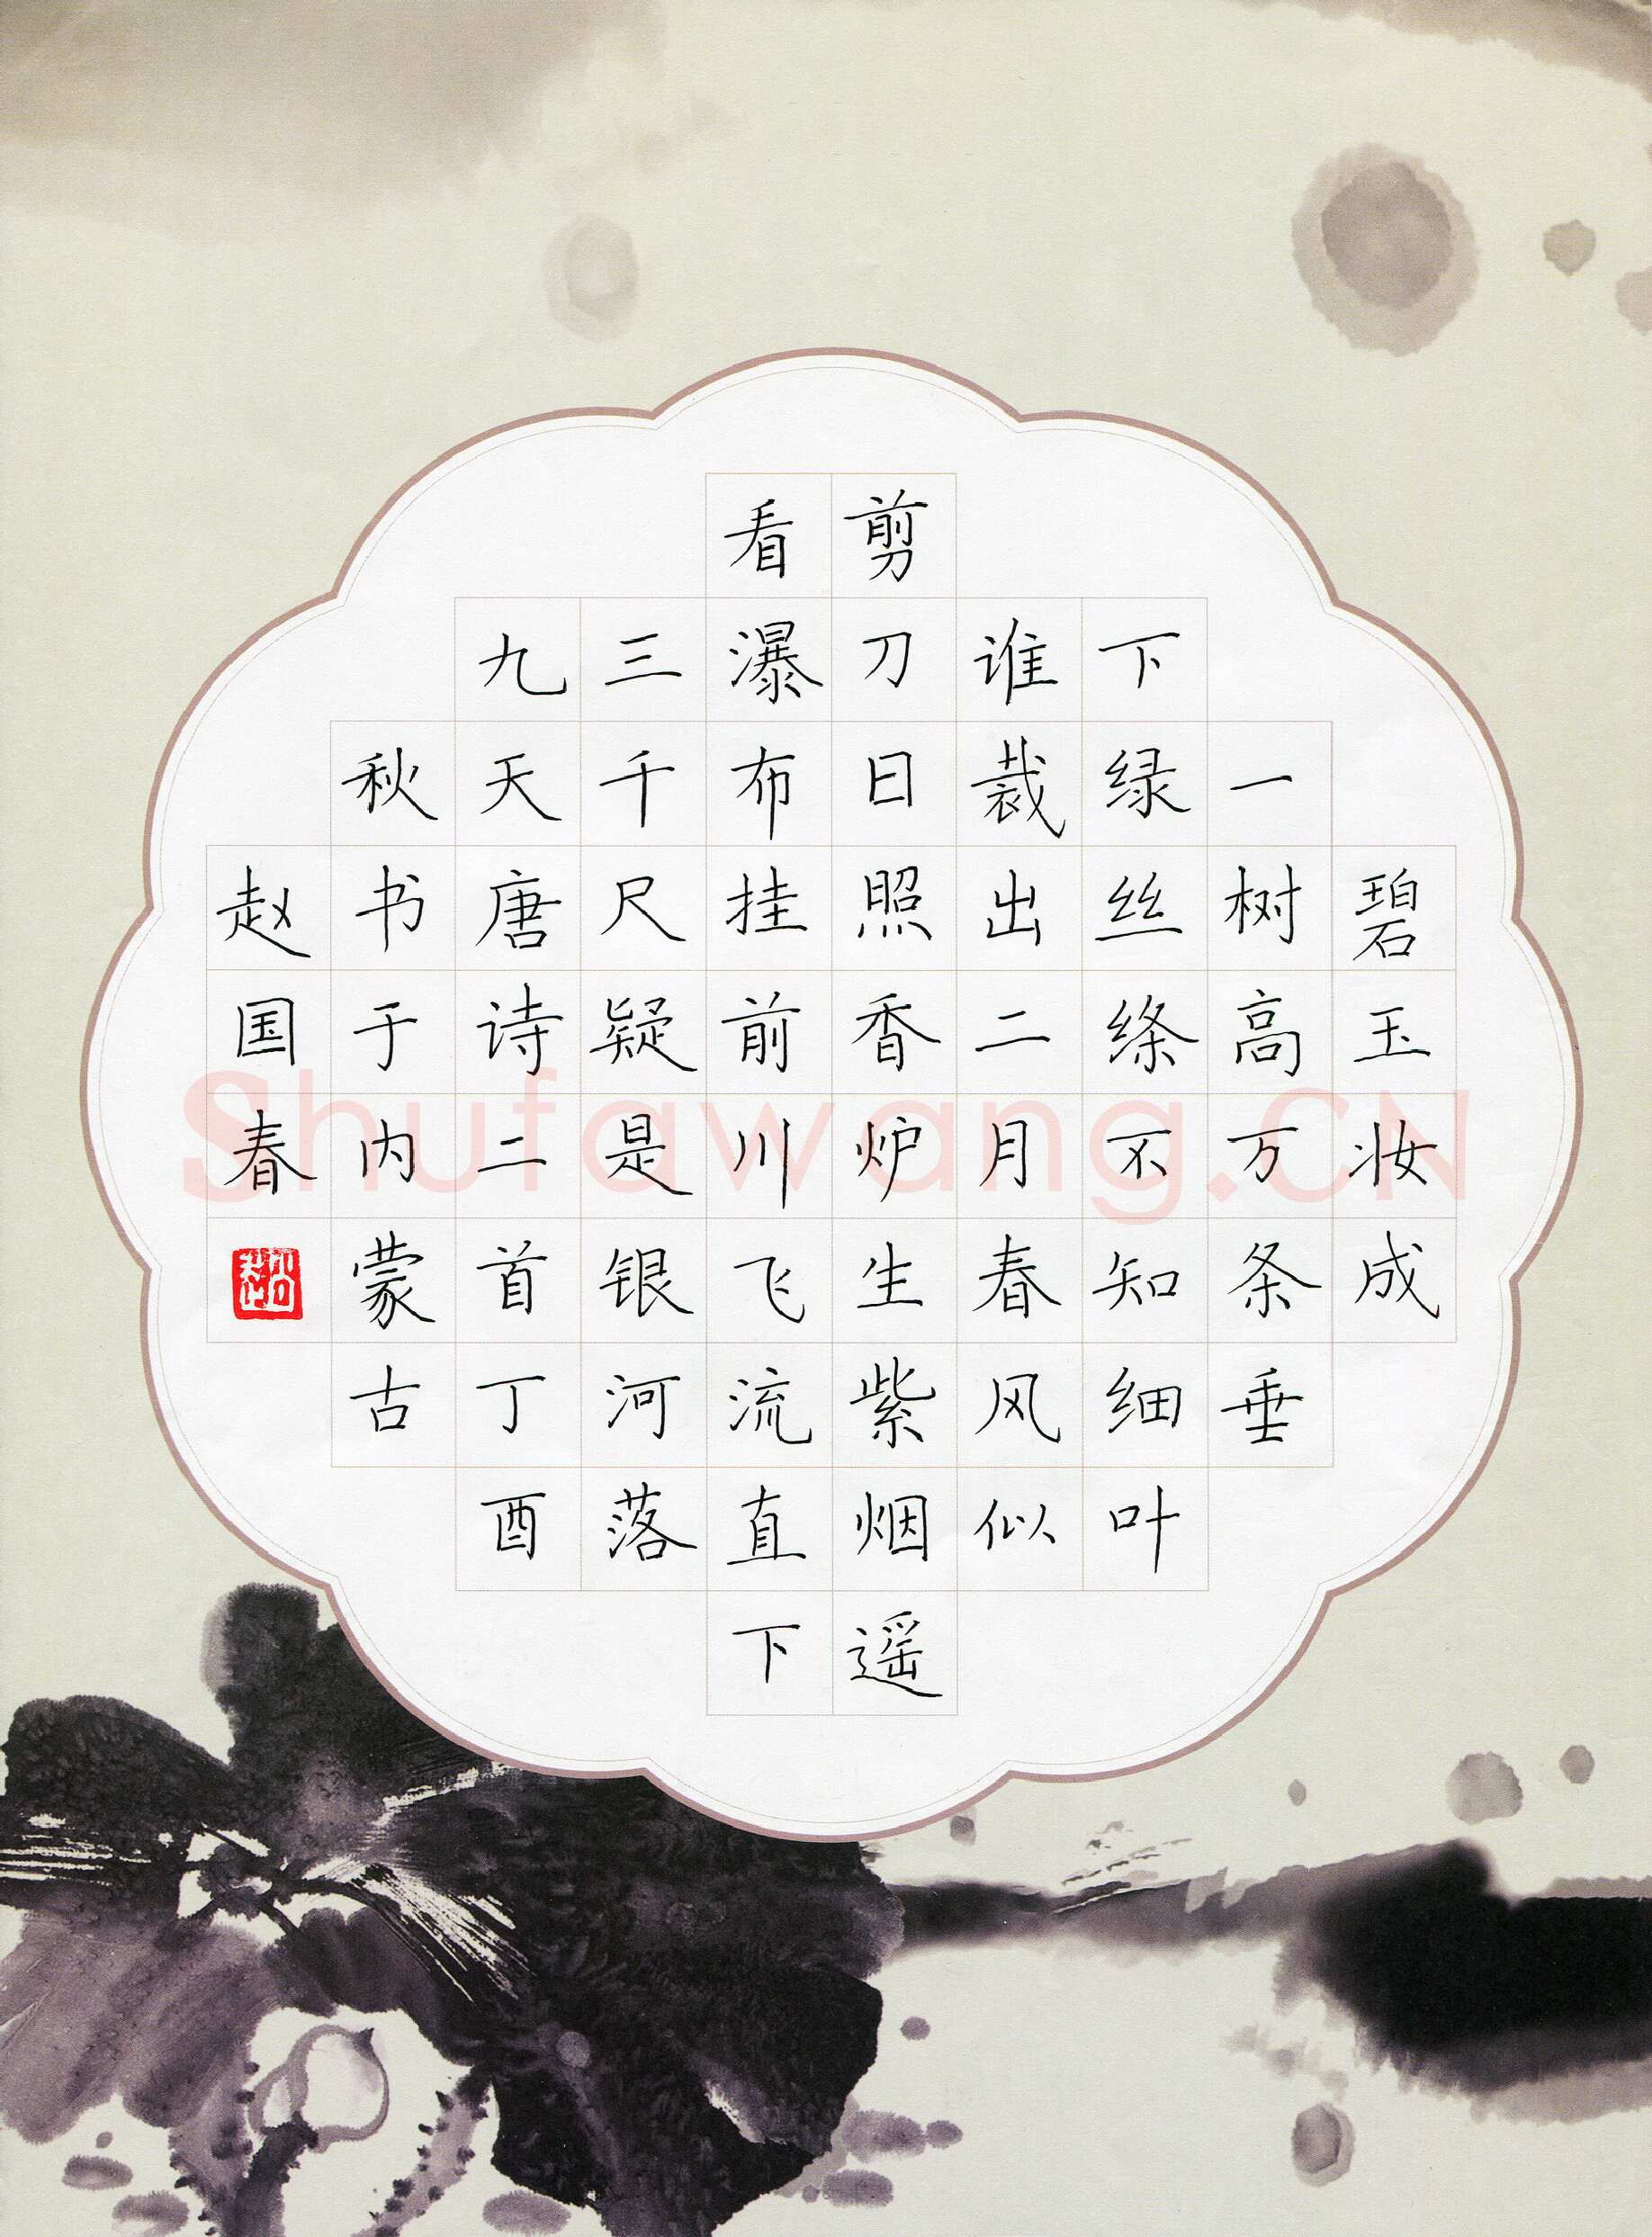 碧玉妆成
一树高万条垂
下绿丝绦不知细叶
谁裁出二月春风似
剪刀日照香炉生紫烟遥
看瀑布挂前川飞流直下
三千尺疑是银河落
九天唐诗二首丁酉
秋书于内蒙古
赵国春
Shufawang.CN